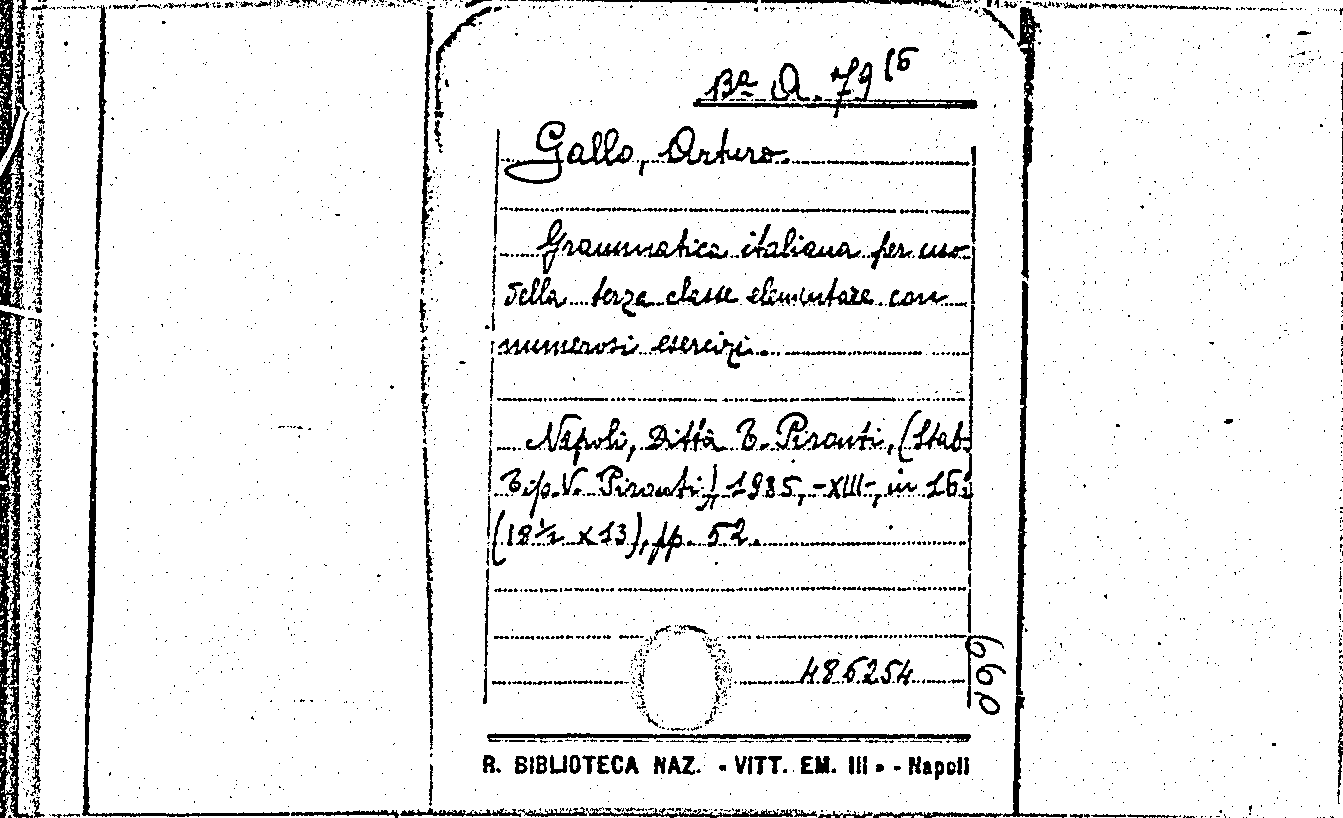 Bª A. 79 (6
Gallo, Arturo.
Grammatica italiana per uso
della terza classe elementare con
numerosi esercizi.
Napoli, Ditta T. Pironti, (Stab.
Tip. V. Pironti), 1935, -XIII-, in 16º
(18½ x 13), pp. 52.
486254
099
R. BIBLIOTECA NAZ. « VITT. EM. III » - Napoli